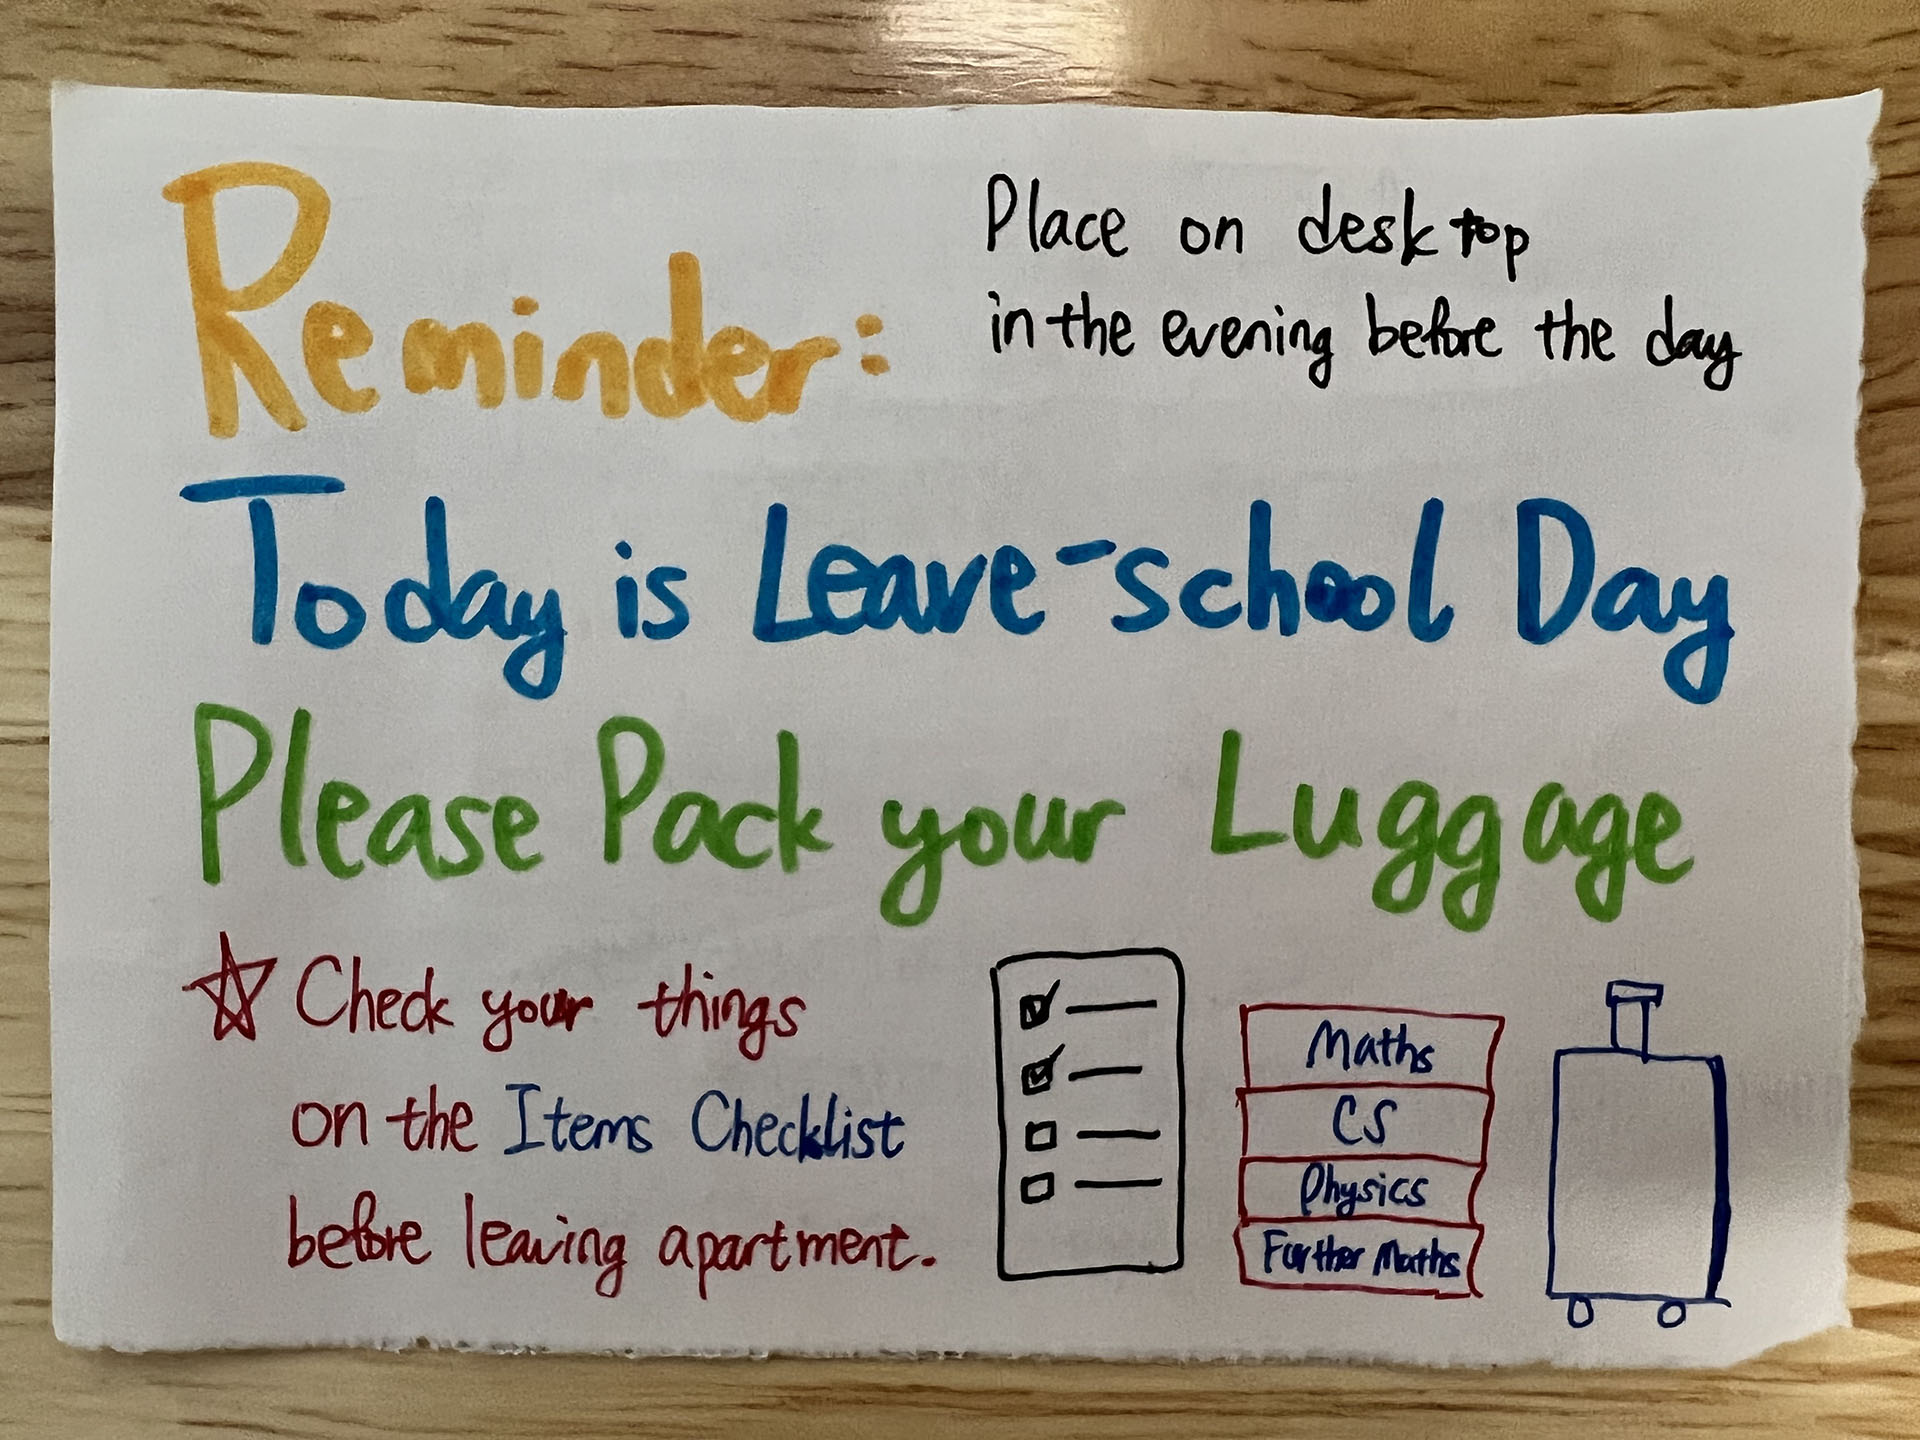 Reminder:
Place on desktop
in the evening before the day
Today is Leave-school Day
Please Pack your Luggage
☆ Check your things
on the Items Checklist
before leaving apartment.
Maths
CS
Physics
Further Maths